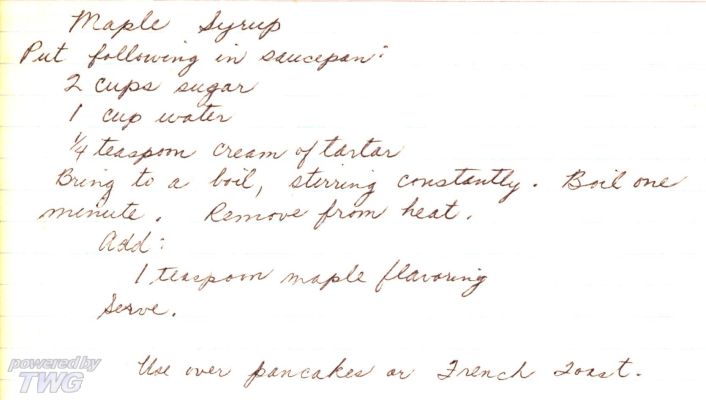 Maple Syrup
Put following in saucepan:
2 cups sugar
1 cup water
1/4 teaspoon cream of tartar
Bring to a boil, stirring constantly. Boil one
minute. Remove from heat.
Add:
1 teaspoon maple flavoring
Serve.
powered by
TWG
Use over pancakes or French Toast.